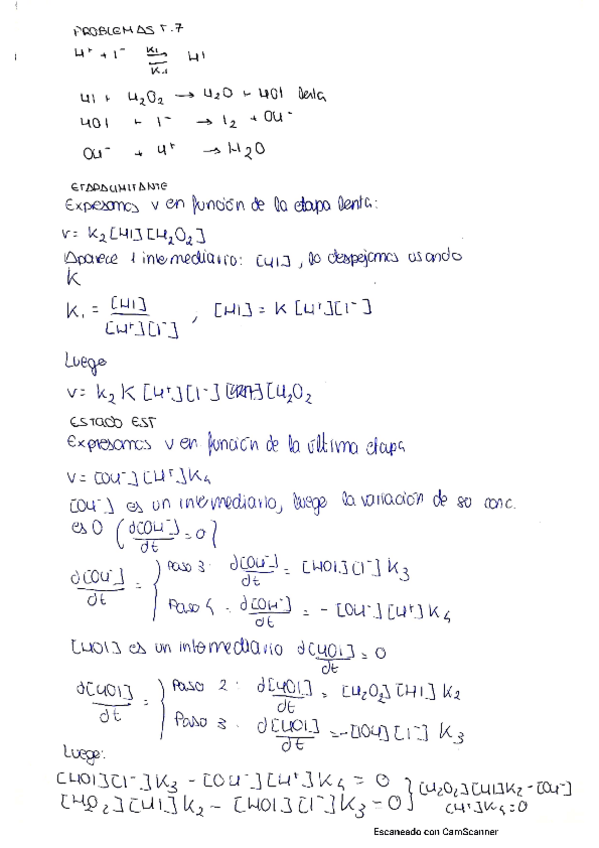 PROBLEMAS T.7
H⁺ + I⁻ ⇌ HI
K₁
K₋₁
HI + H₂O₂ → H₂O + HOI lenta
HOI + I⁻ → I₂ + OH⁻
OH⁻ + H⁺ → H₂O
ETAPA LIMITANTE
Expresamos v en función de la etapa lenta:
v = K₂[HI][H₂O₂]
Aparece 1 intermediario: [HI], lo despejamos usando
K
K₁ = [HI] / [H⁺][I⁻] , [HI] = K [H⁺][I⁻]
Luego
v = K₂ K [H⁺][I⁻] [H₂O₂
ESTADO EST
Expresamos v en función de la última etapa
v = [OH⁻][H⁺]K₄
[OH⁻] es un intermediario, luego la variación de su conc.
es 0 (d[OH⁻]/dt = 0)
d[OH⁻]/dt = } Paso 3: d[OH⁻]/dt = [HOI][I⁻] K₃
Paso 4: d[OH⁻]/dt = - [OH⁻][H⁺] K₄
[HOI] es un intermediario d[HOI]/dt = 0
d[HOI]/dt = } Paso 2: d[HOI]/dt = [H₂O₂][HI] K₂
Paso 3: d[HOI]/dt = - [IOH][I⁻] K₃
Luego:
[HOI][I⁻]K₃ - [OH⁻][H⁺]K₄ = 0 } [H₂O₂][HI]K₂ - [OH⁻]
[H₂O₂][HI]K₂ - [HOI][I⁻]K₃ = 0 } [H⁺]K₄ = 0
Escaneado con CamScanner